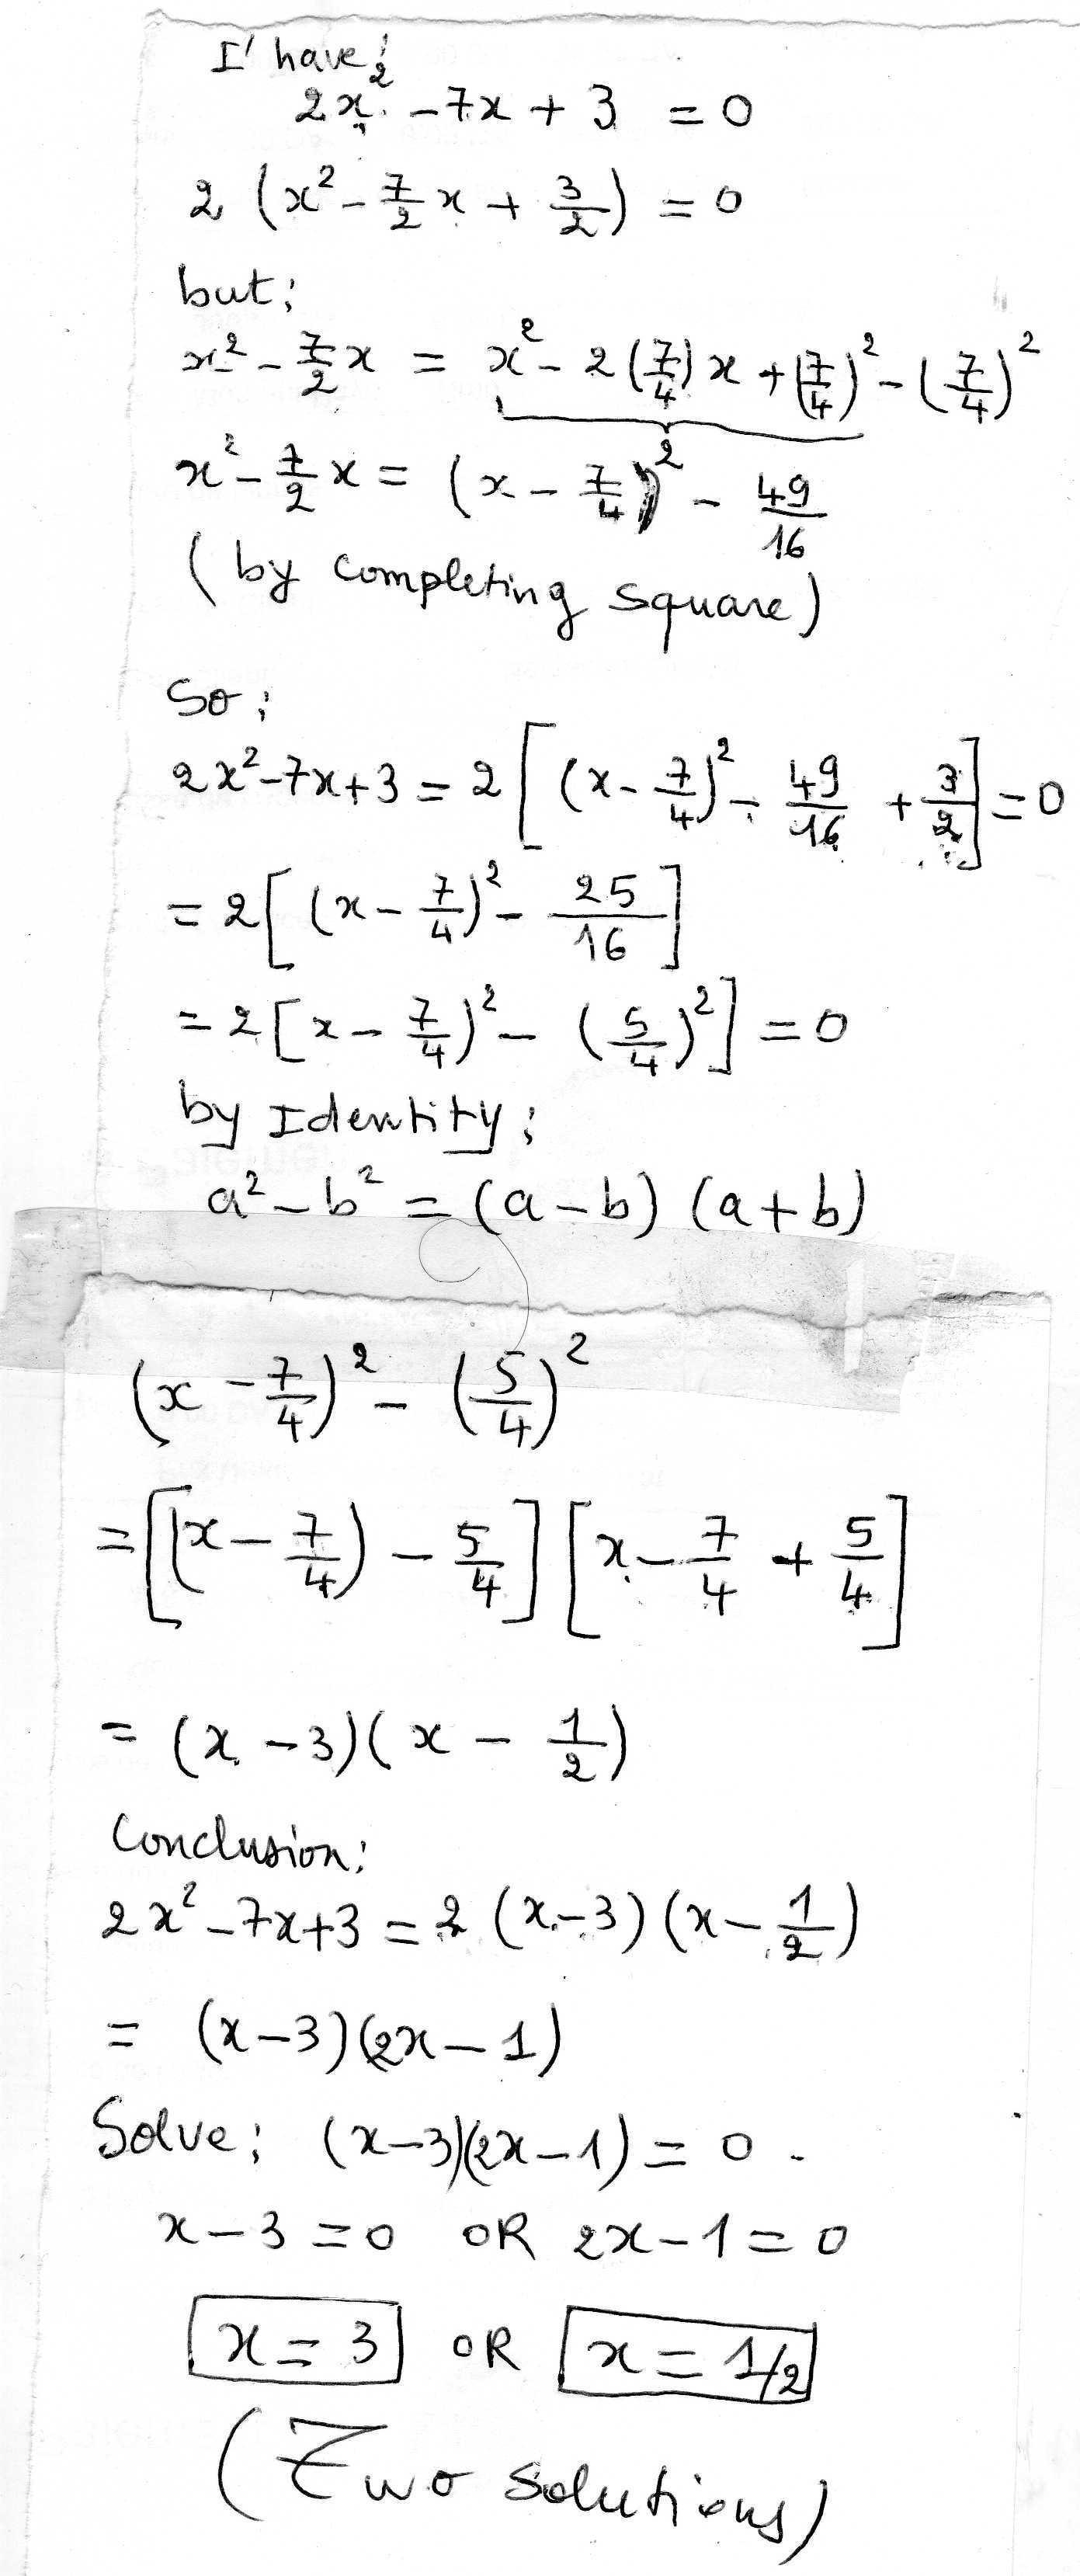 I' have;
2x² - 7x + 3 = 0
2 (x² - 7/2 x + 3/2) = 0
but;
x² - 7/2 x = x² - 2(7/4)x + (7/4)² - (7/4)²
x² - 7/2 x = (x - 7/4)² - 49/16
(by completing square)
So;
2x² - 7x + 3 = 2[(x - 7/4)² - 49/16 + 3/2] = 0
= 2[(x - 7/4)² - 25/16]
= 2[x - 7/4)² - (5/4)²] = 0
by Identity;
a² - b² = (a - b) (a + b)
(x - 7/4)² - (5/4)²
= [(x - 7/4) - 5/4] [x - 7/4 + 5/4]
= (x - 3)(x - 1/2)
Conclusion;
2x² - 7x + 3 = 2 (x - 3) (x - 1/2)
= (x - 3)(2x - 1)
Solve; (x - 3)(2x - 1) = 0.
x - 3 = 0 OR 2x - 1 = 0
x = 3 OR x = 1/2
(Two solutions)